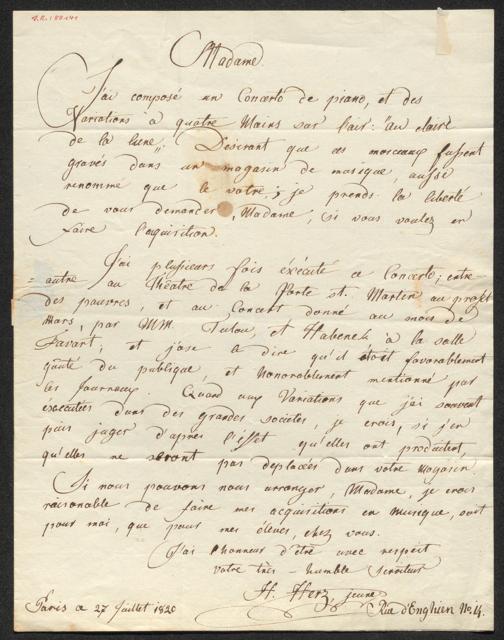 Madame.
J'ai composé un Concerto de piano, et des
Variations à quatre Mains sur l'air: "au claire
de la lune„. Désirant que ces morceaux fussent
gravés dans un magasin de musique, aussi
renommé que le votre; je prends la liberté
de vous demander, Madame, si vous voulez en
faire l'aquisition.
J'ai plusieurs fois éxécuté ce Concerto; entre
= autre au théatre de la Porte St. Martin au profit
des pauvres, et au Concert donné au mois de
Mars, par MM. Tulou, et Habenek à la salle
Favart; et j'ose le dire qu'il étoit favorablement
gouté du publique et honorablement mentionné par
les Journaux. Quand aux Variations que j'ai souvent
éxécutées dans des grandes societés, je crois, si j'en
puis juger d'apres l'éffet qu'elles ont produites,
qu'elles ne seront pas deplacées dans votre Magasin.
Si nous pouvons nous arranger, Madame, je crois
raisonable de faire mes acquisitions en musique, soit
pour moi, que pour mes éleves, chez vous.
J'ai l'honneur d'être avec respect
votre très-humble serviteur
H. Herz, jeune
Paris ce 27 Juillet 1820
Rue d'Enghien No. 14.